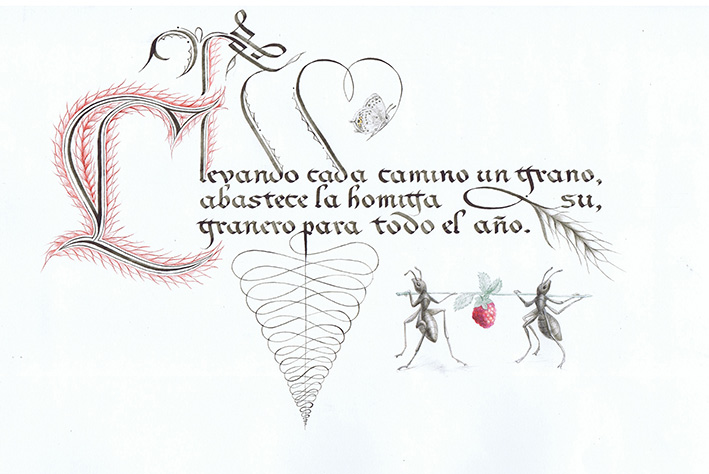 Llevando cada camino un grano,
abastece la homiga su,
granero para todo el año.